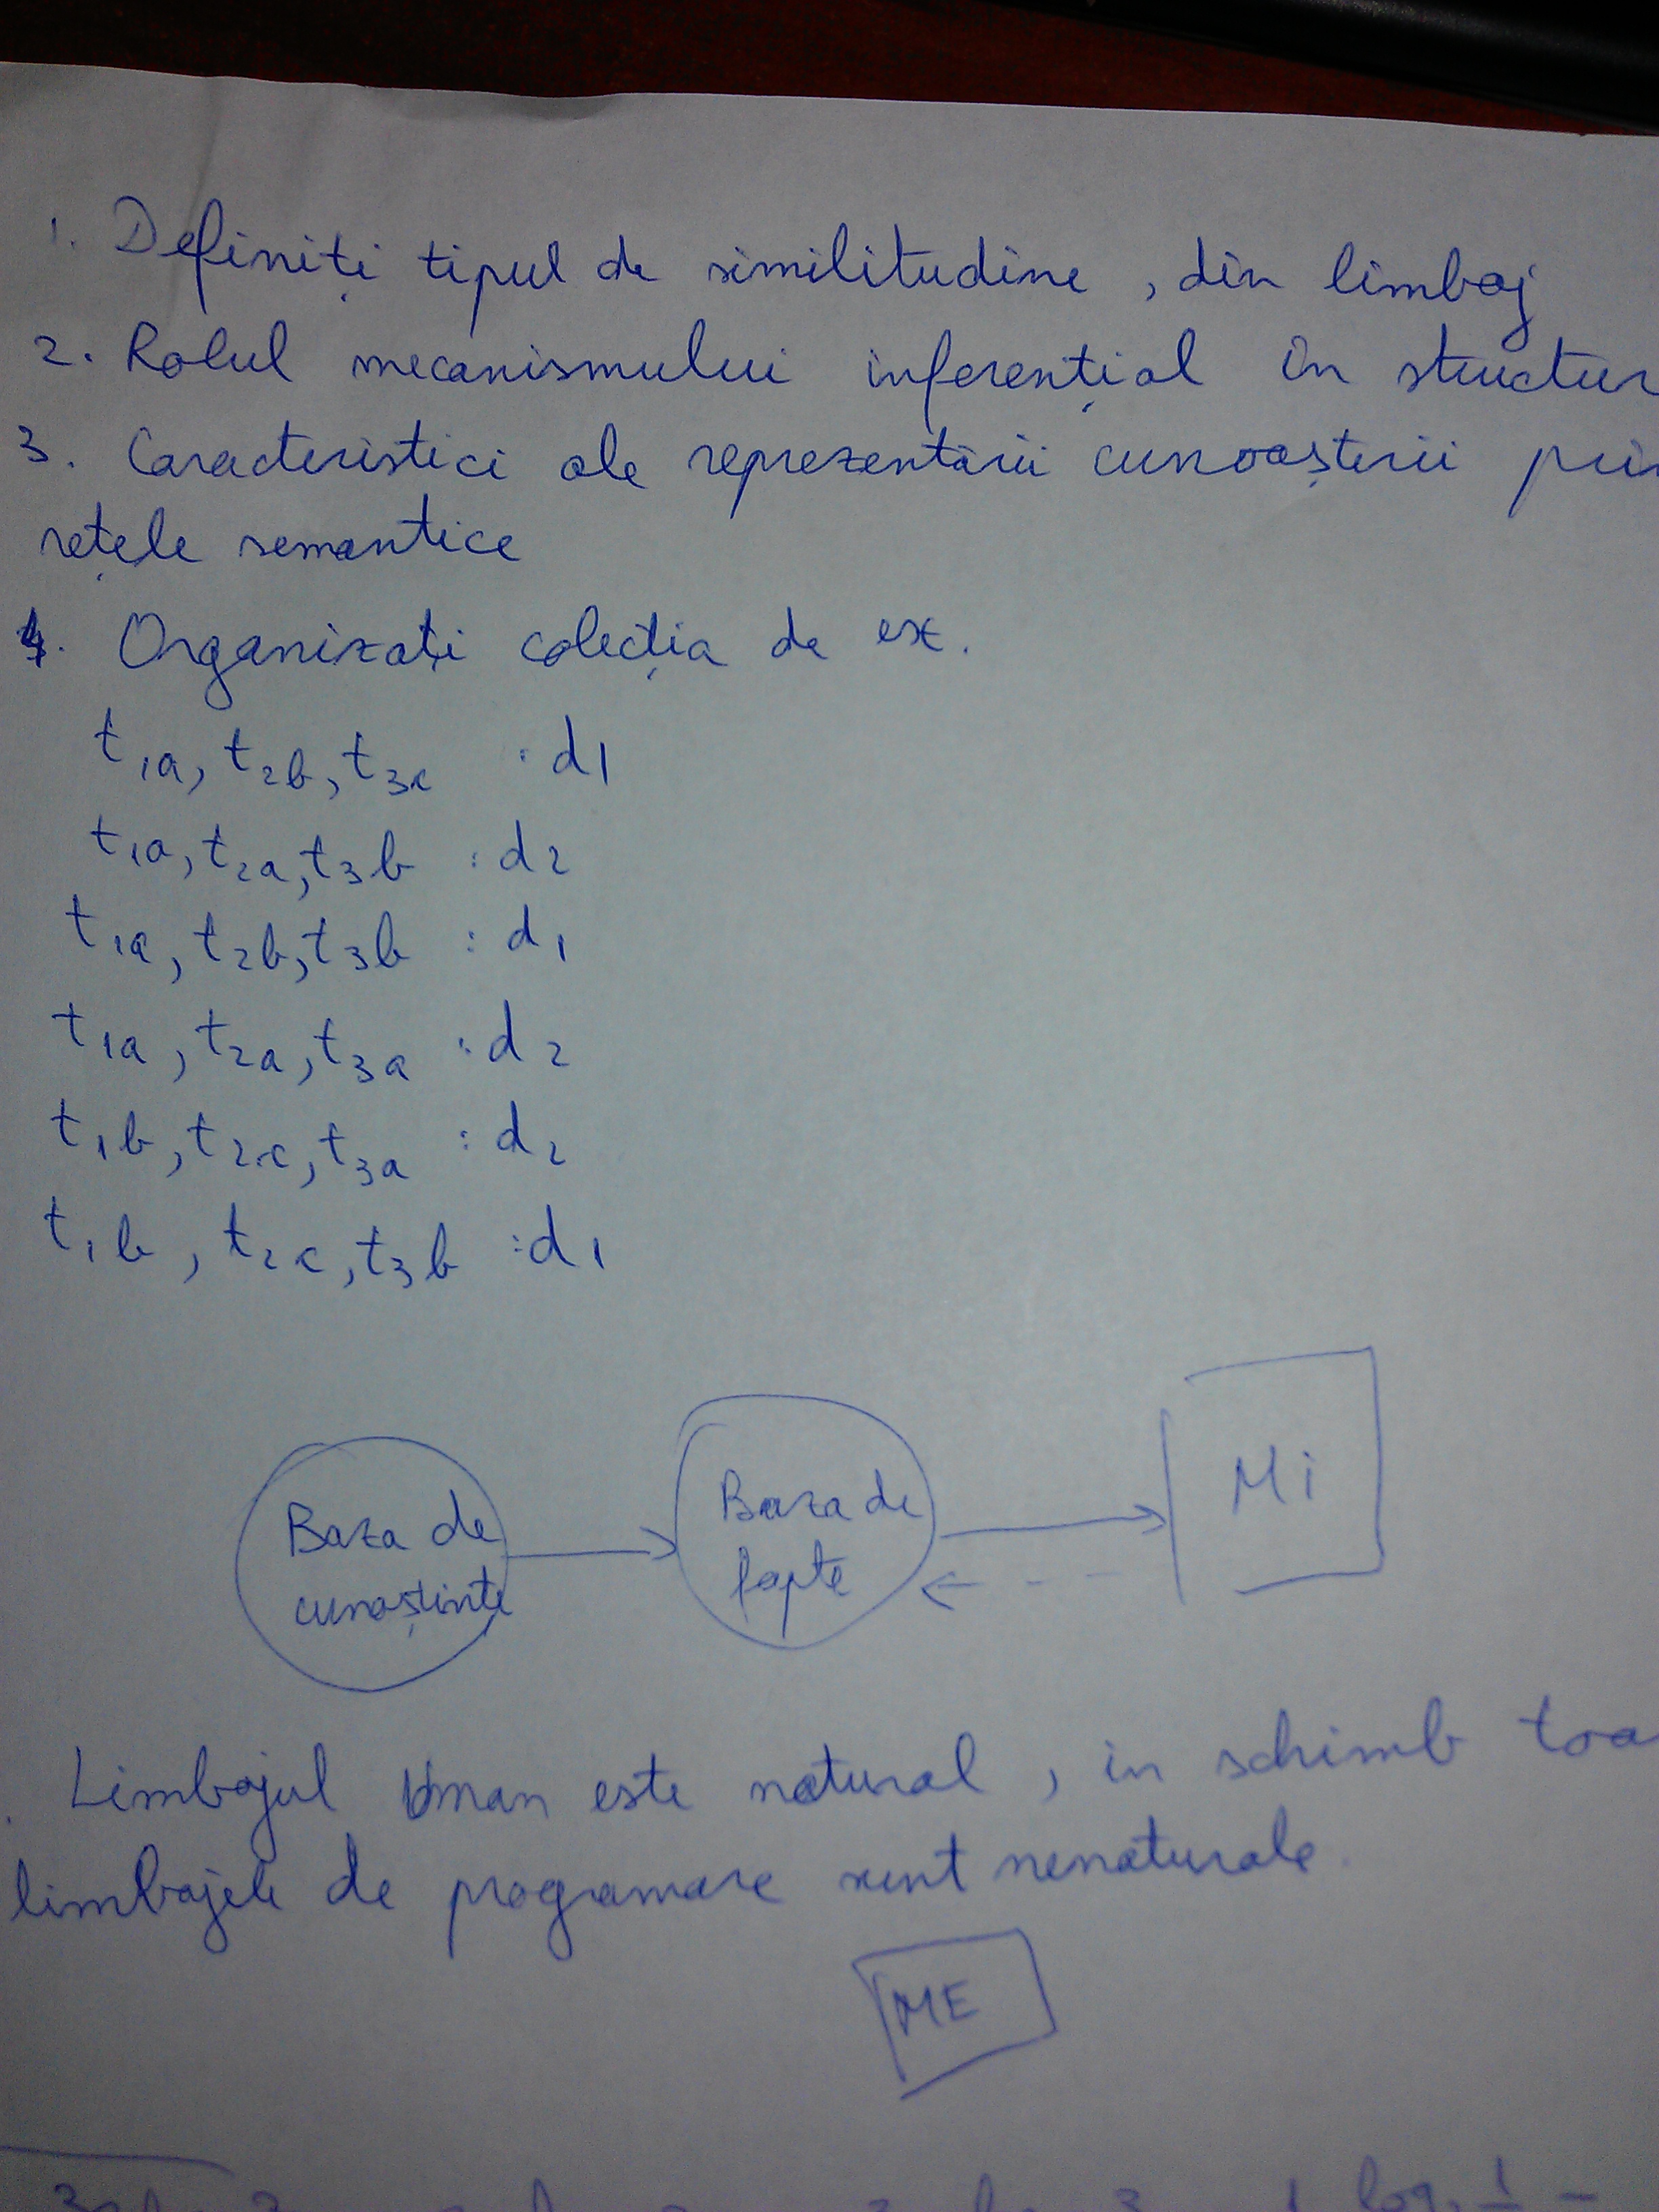 1. Definiți tipul de similitudine, din limbaj
2. Rolul mecanismului inferențial în structur
3. Caracteristici ale reprezentării cunoașterii prin
rețele semantice
4. Organizați colecția de ex.
t1a, t2b, t3c : d1
t1a, t2a, t3b : d2
t1a, t2b, t3b : d1
t1a, t2a, t3a : d2
t1b, t2c, t3a : d2
t1b, t2c, t3b : d1
Baza de
cunoștințe
Baza de
fapte
Mi
Limbajul Uman este natural, in schimb toa
limbajele de programare sunt nenaturale.
ME